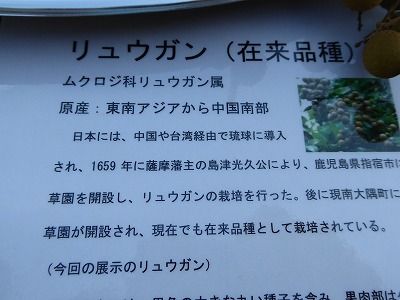 リュウガン（在来品種）
ムクロジ科リュウガン属
原産：東南アジアから中国南部
日本には、中国や台湾経由で琉球に導入
され、1659 年に薩摩藩主の島津光久公により、鹿児島県指宿市に
草園を開設し、リュウガンの栽培を行った。後に現南大隅町に
草園が開設され、現在でも在来品種として栽培されている。
（今回の展示のリュウガン）